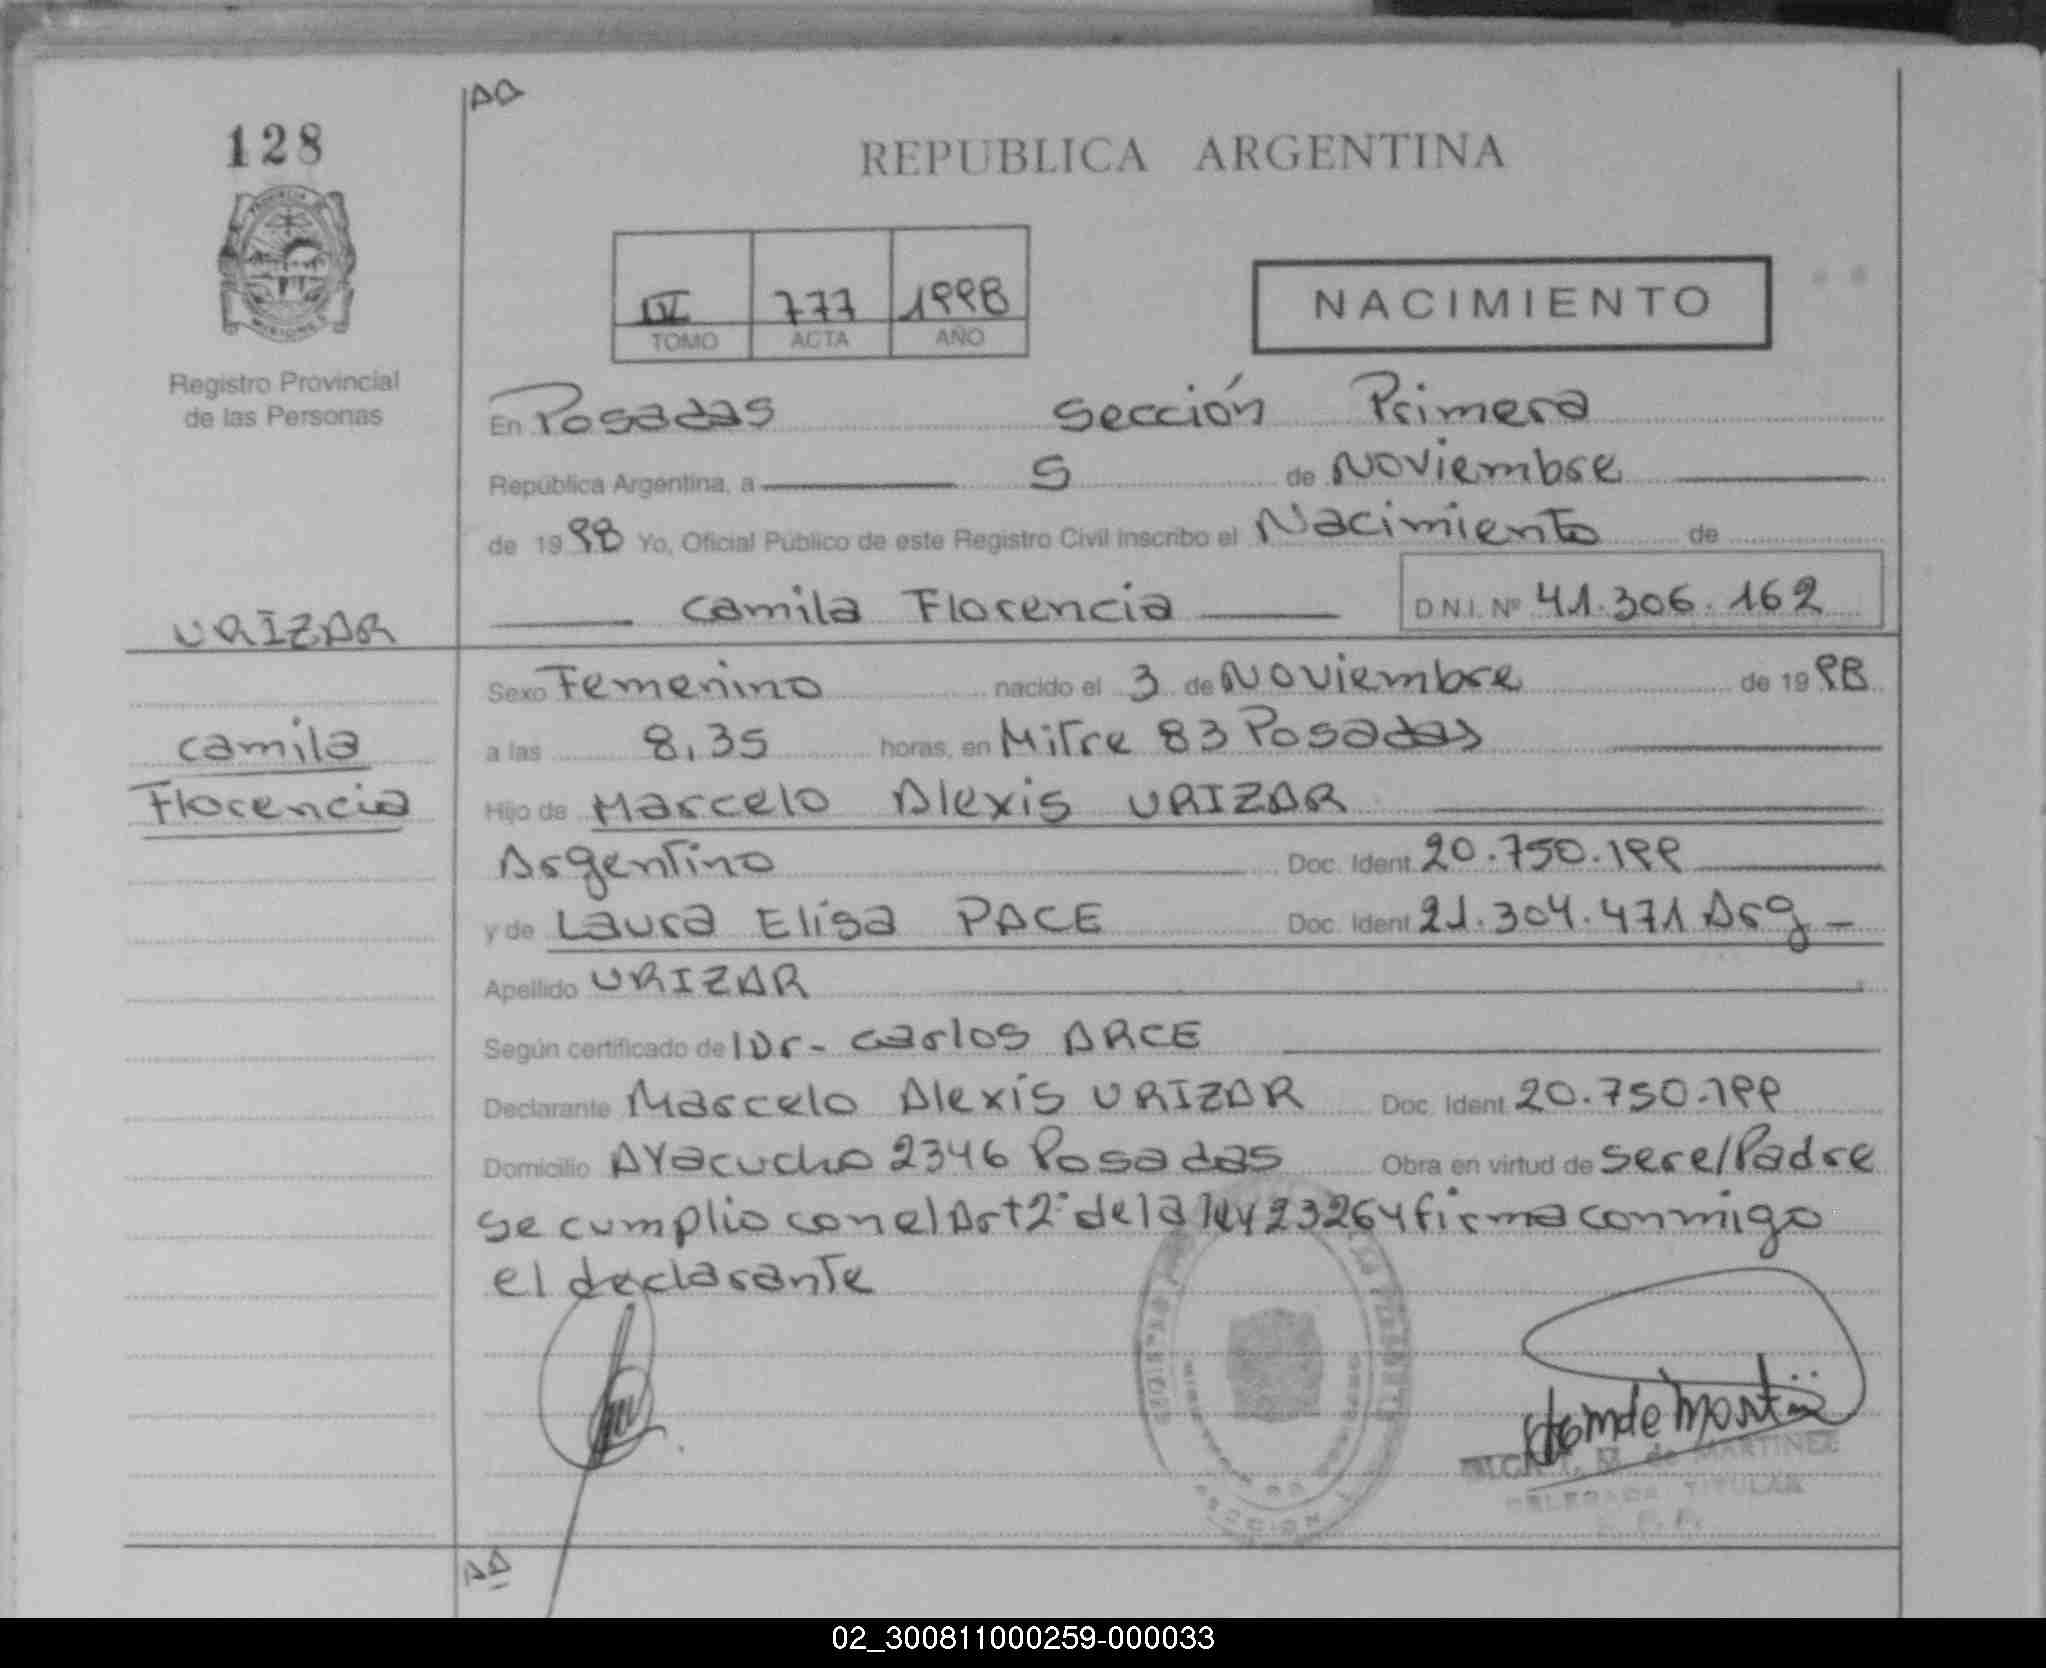 128
REPUBLICA ARGENTINA
PROVINCIA
MISIONES
Registro Provincial
de las Personas
IV 777 1998
TOMO ACTA AÑO
NACIMIENTO
En Posadas Sección Primera
República Argentina, a 5 de Noviembre
de 1998 Yo, Oficial Público de este Registro Civil Inscribo el Nacimiento de
Camila Florencia D.N.I. Nº 41.306.162
URIZAR
Camila
Florencia
Sexo Femenino nacido el 3 de Noviembre de 1998
a las 8,35 horas, en Mitre 83 Posadas
Hijo de Marcelo Alexis URIZAR
Argentino Doc. Ident. 20.750.199
y de Laura Elisa PACE Doc. Ident. 21.304.471 Arg
Apellido URIZAR
Según certificado de Dr- Carlos ARCE
Declarante Marcelo Alexis URIZAR Doc. Ident. 20.750.199
Domicilio AYacucho 2346 Posadas Obra en virtud de ser el Padre
se cumplio con el Art 2º de la ley 23264 firma conmigo
el declarante
de MARTINEZ
DELEGADA TITULAR
02_300811000259-000033